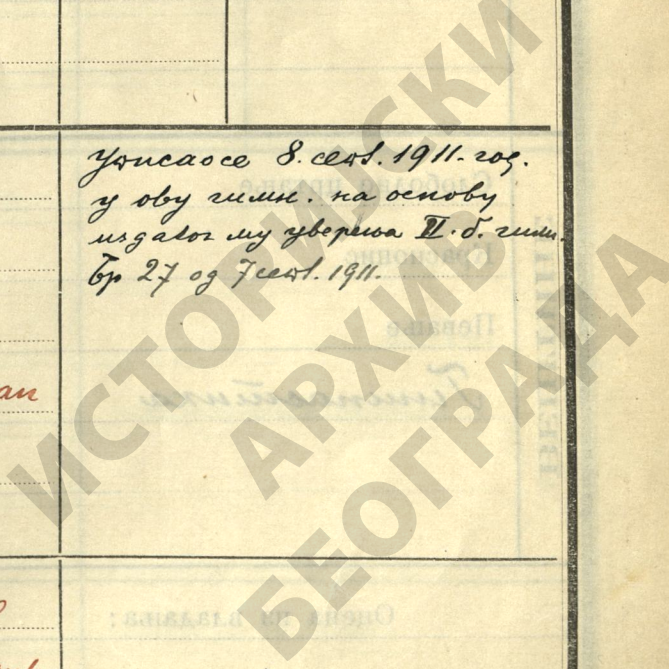 Уписао се 8. септ. 1911. год.
у ову гимн. на основу
издатог му уверења II. б. гимн.
Бр 27 од 7 септ. 1911.
ан
ИСТОРИЈСКИ
АРХИВ
БЕОГРАДА